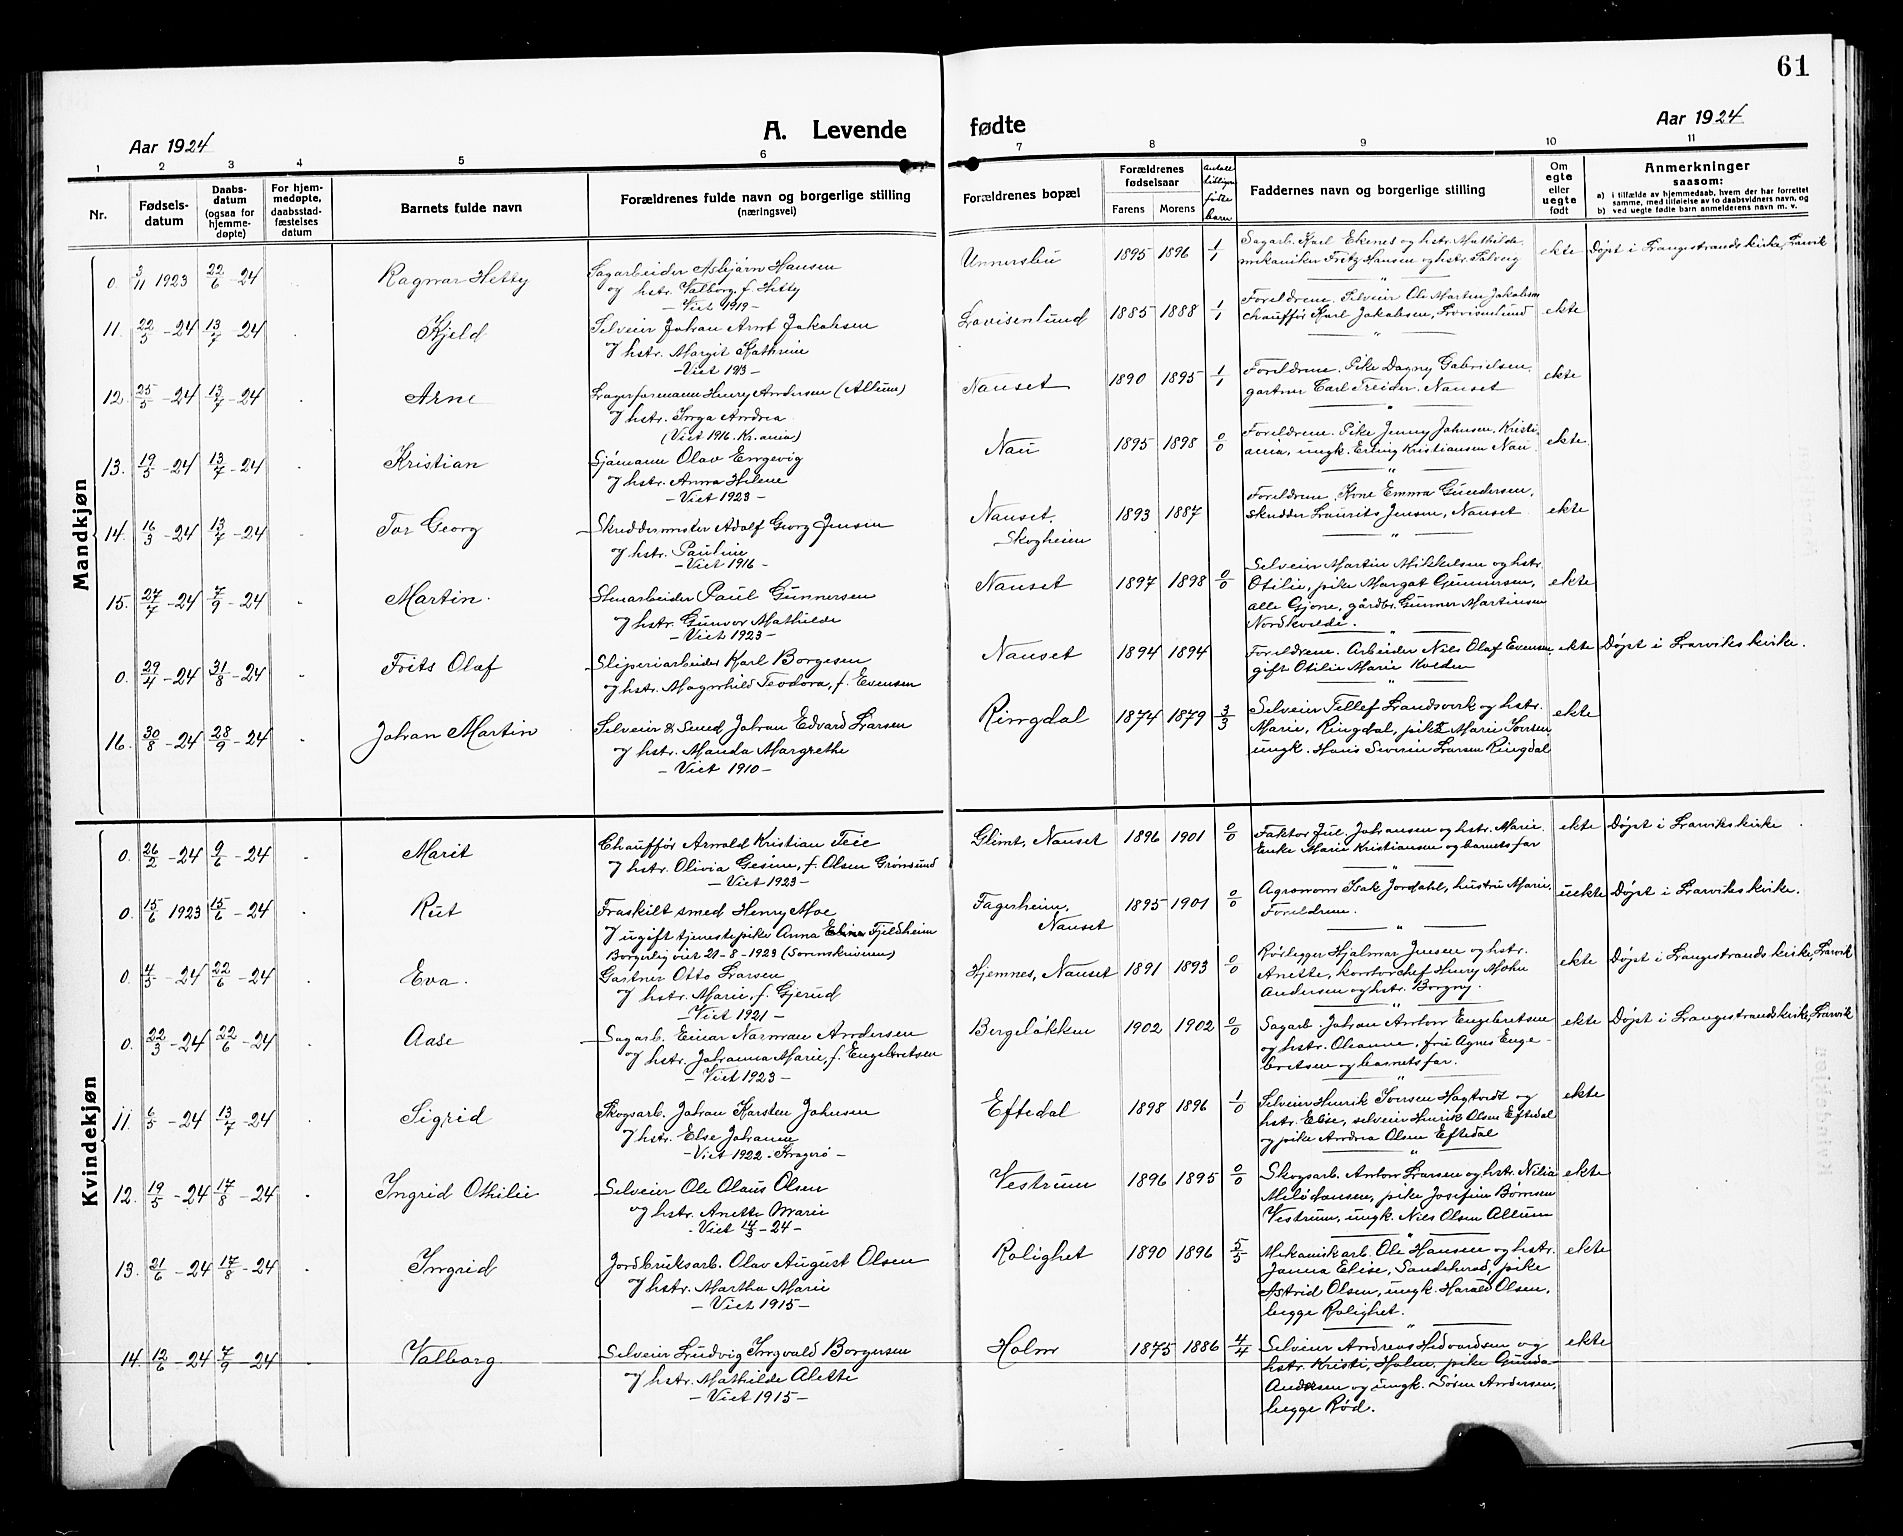 61
Aar 1924
A. Levende
fødte
Aar 1924
1 2 3 4 5 6 7 8 9 10 11
Nr.
Fødsels-
datum
Daabs-
datum
(ogsaa for
hjemme-
døpte)
For hjem-
medøpte,
daabsstad-
fæstelses
datum
Barnets fulde navn
Forældrenes fulde navn og borgerlige stilling
(næringsvei)
Forældrenes bopæl
Forældrenes
fødselsaar
Farens Morens
Antall
tidligere
fødte
barn
Faddernes navn og borgerlige stilling
Om
egte
eller
uegte
født
Anmerkninger
saasom:
a) i tilfælde av hjemmedaab, hvem der har forrettet
samme, med tilføielse av to daabsvidners navn, og
b) ved uegte fødte barn anmelderens navn m. v.
Mandkjøn
0. 3/11 1923 22/6-24 Ragnar Hetty
Sagarbeider Asbjørn Hansen
og hstr. Valborg f. Hetty
- Viet 1919 -
Unnersbu 1895 1896 1/1
Sagarb. Karl Ekenes og hstr. Mathilde,
mekaniker Fritz Hansen og hstr. Solveig
ekte Døpt i Langestrands kirke, Larvik
11. 22/5-24 13/7-24 Kjeld
Selveier Johan Arnt Jakobsen
og hstr. Margit Kathrine
- Viet 193 -
Lovisenlund 1885 1888 1/1
Foreldrene. Selveier Ole Martin Jakobsen
chauffør Karl Jakobsen, Lovisenlund
ekte
12. 25/5-24 13/7-24 Arne
Lagerformann Henry Andersen (Allum)
og hstr. Inga Andrea
(Viet 1916. Kr.ania)
Nanset 1890 1895 1/1
Foreldrene. Pike Dagny Gabrielsen,
gartner Carl Treider. Nanset
ekte
13. 19/5-24 13/7-24 Kristian
Sjømann Olav Engevig
og hstr. Anna Helene
- Viet 1923 -
Nau 1895 1898 0/0
Foreldrene. Pike Jenny Johnsen, Kristi-
ania, ungk. Erling Kristiansen Nau
ekte
14. 16/3-24 13/7-24 Tor Georg
Skreddermester Adolf Georg Jensen
og hstr. Pauline
- Viet 1916 -
Nanset,
Skogheim 1893 1887
Foreldrene, Kone Emma Gundersen,
skredder Laurits Jensen, Nanset
ekte
15. 27/7-24 7/9-24 Martin.
Stenarbeider Paul Gunnersen
og hstr. Gunvor Mathilde
- Viet 1923 -
Nanset 1897 1898 0/0
Selveier Martin Mikkelsen og hstr.
Otilie, pike Margot Gunnersen,
alle Gjone, gårdbr. Gunner Martinsen
Nordkvelde.
ekte
0. 29/4-24 31/8-24 Frits Olaf
Sliperiarbeider Karl Borgesen
og hstr. Magnhild Teodora, f. Evensen
Nanset 1894 1894
Foreldrene. Arbeider Nils Olaf Evensen,
gift Otilie Marie Kvelden
ekte Døpt i Larviks kirke.
16. 30/8-24 28/9-24 Johan Martin
Selveier & Smed Johan Edvard Larsen
og hstr. Manda Margrethe
- Viet 1910 -
Ringdal 1874 1879 3/3
Selveier Tellef Landsverk og hstr.
Marie, Ringdal, pike Marie Iversen
ungk. Hans Severin Larsen Ringdal
ekte
Kvindekjøn
0. 26/2-24 9/6-24 Marit
Chauffør Arnold Kristian Teie
og hstr. Olivia Gesine, f. Olsen Grønsund
- Viet 1923 -
Glimt, Nanset 1896 1901 0/0
Faktor Jul. Johansen og hstr. Marie.
Enke Marie Kristiansen og barnets far
ekte Døpt i Larviks kirke
0. 15/6 1923 15/6-24 Rut
Fraskilt smed Henry Moe
og ugift tjenestepike Anna Eline Fjeldheim
Borgerlig viet 21-8-1923 (Sorenskriveren)
Fagerheim,
Nanset 1895 1901 0/0
Agronom Isak Jordahl, hustru Marie,
Foreldrene.
uekte Døpt i Larviks kirke.
0. 4/5-24 22/6-24 Eva.
Gartner Otto Larsen
og hstr. Marie, f. Gjerud
- Viet 1921
Hjemnes, Nanset 1891 1893 0/0
Rørlegger Hjalmar Jensen og hstr.
Anette, kontorchef Henry Møhn
Andersen og hstr. Borgny.
ekte Døpt i Langestrands kirke, Larvik
0. 22/3-24 22/6-24 Aase
Sagarb. Einar Norman Andersen
og hstr. Johanna Marie, f. Engebretsen
- Viet 1923 -
Bergeløkken 1902 1902 0/0
Sagarb. Johan Anton Engebretsen
og hstr. Oleanne, fru Agnes Enge-
bretsen og barnets far.
ekte Døpt i Langestrands kirke, Larvik
11. 6/5-24 13/7-24 Sigrid
Skogsarb. Johan Karsten Johnsen
og hstr. Else Johanne
- Viet 1922 - Kragerø -
Eftedal 1898 1896 1/0
Selveier Henrik Iversen Hagtvedt og
hstr. Elise, selveier Henrik Olsen Eftedal
og pike Andrea Olsen Eftedal
ekte
12. 19/5-24 17/8-24 Ingrid Othilie
Selveier Ole Olaus Olsen
og hstr. Anette Marie
- Viet 14/3-24
Vestrum 1896 1895 0/0
Skogsarb. Anton Larsen og hstr. Nilia
pike Josefine Børresen
Vestrum, ungk. Nils Olsen Allum
ekte
13. 21/6-24 17/8-24 Ingrid
Jordbruksarb. Olav August Olsen
og hstr. Martha Marie
- Viet 1915 -
Rolighet 1890 1896 5/5
Mekanisk arb. Ole Hansen og hstr.
Janna Elise, Sandehered, pike
Astrid Olsen, ungk. Harald Olsen,
begge Rolighet.
ekte
14. 12/6-24 7/9-24 Valborg.
Selveier Ludvig Ingvald Borgersen
og hstr. Mathilde Alette
- Viet 1915 -
Holm 1875 1886 4/4
Selveier Andreas Hedvardsen og
hstr. Kristi, Holm, pike Gunda
Andersen og ungk. Søren Andersen,
begge Rød.
ekte